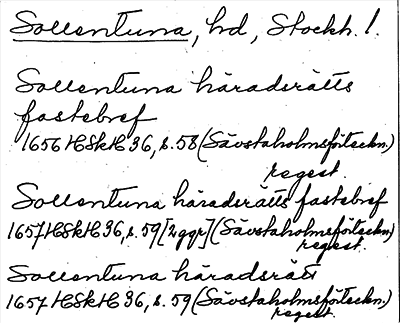 Sollentuna, hd, Stockh. l.
Sollentuna häradsrätts
fastebref
1656 HSkH 36, s. 58 (Sävstaholmsförteckn.)
regest.
Sollentuna häradsrätts fastebref
1657 HSkH 36, s. 59 [2 ggr] (Sävstaholmsförteckn.)
regest.
Sollentuna häradsrätt
1657 HSkH 36, s. 59 (Sävstaholmsförteckn.)
regest.